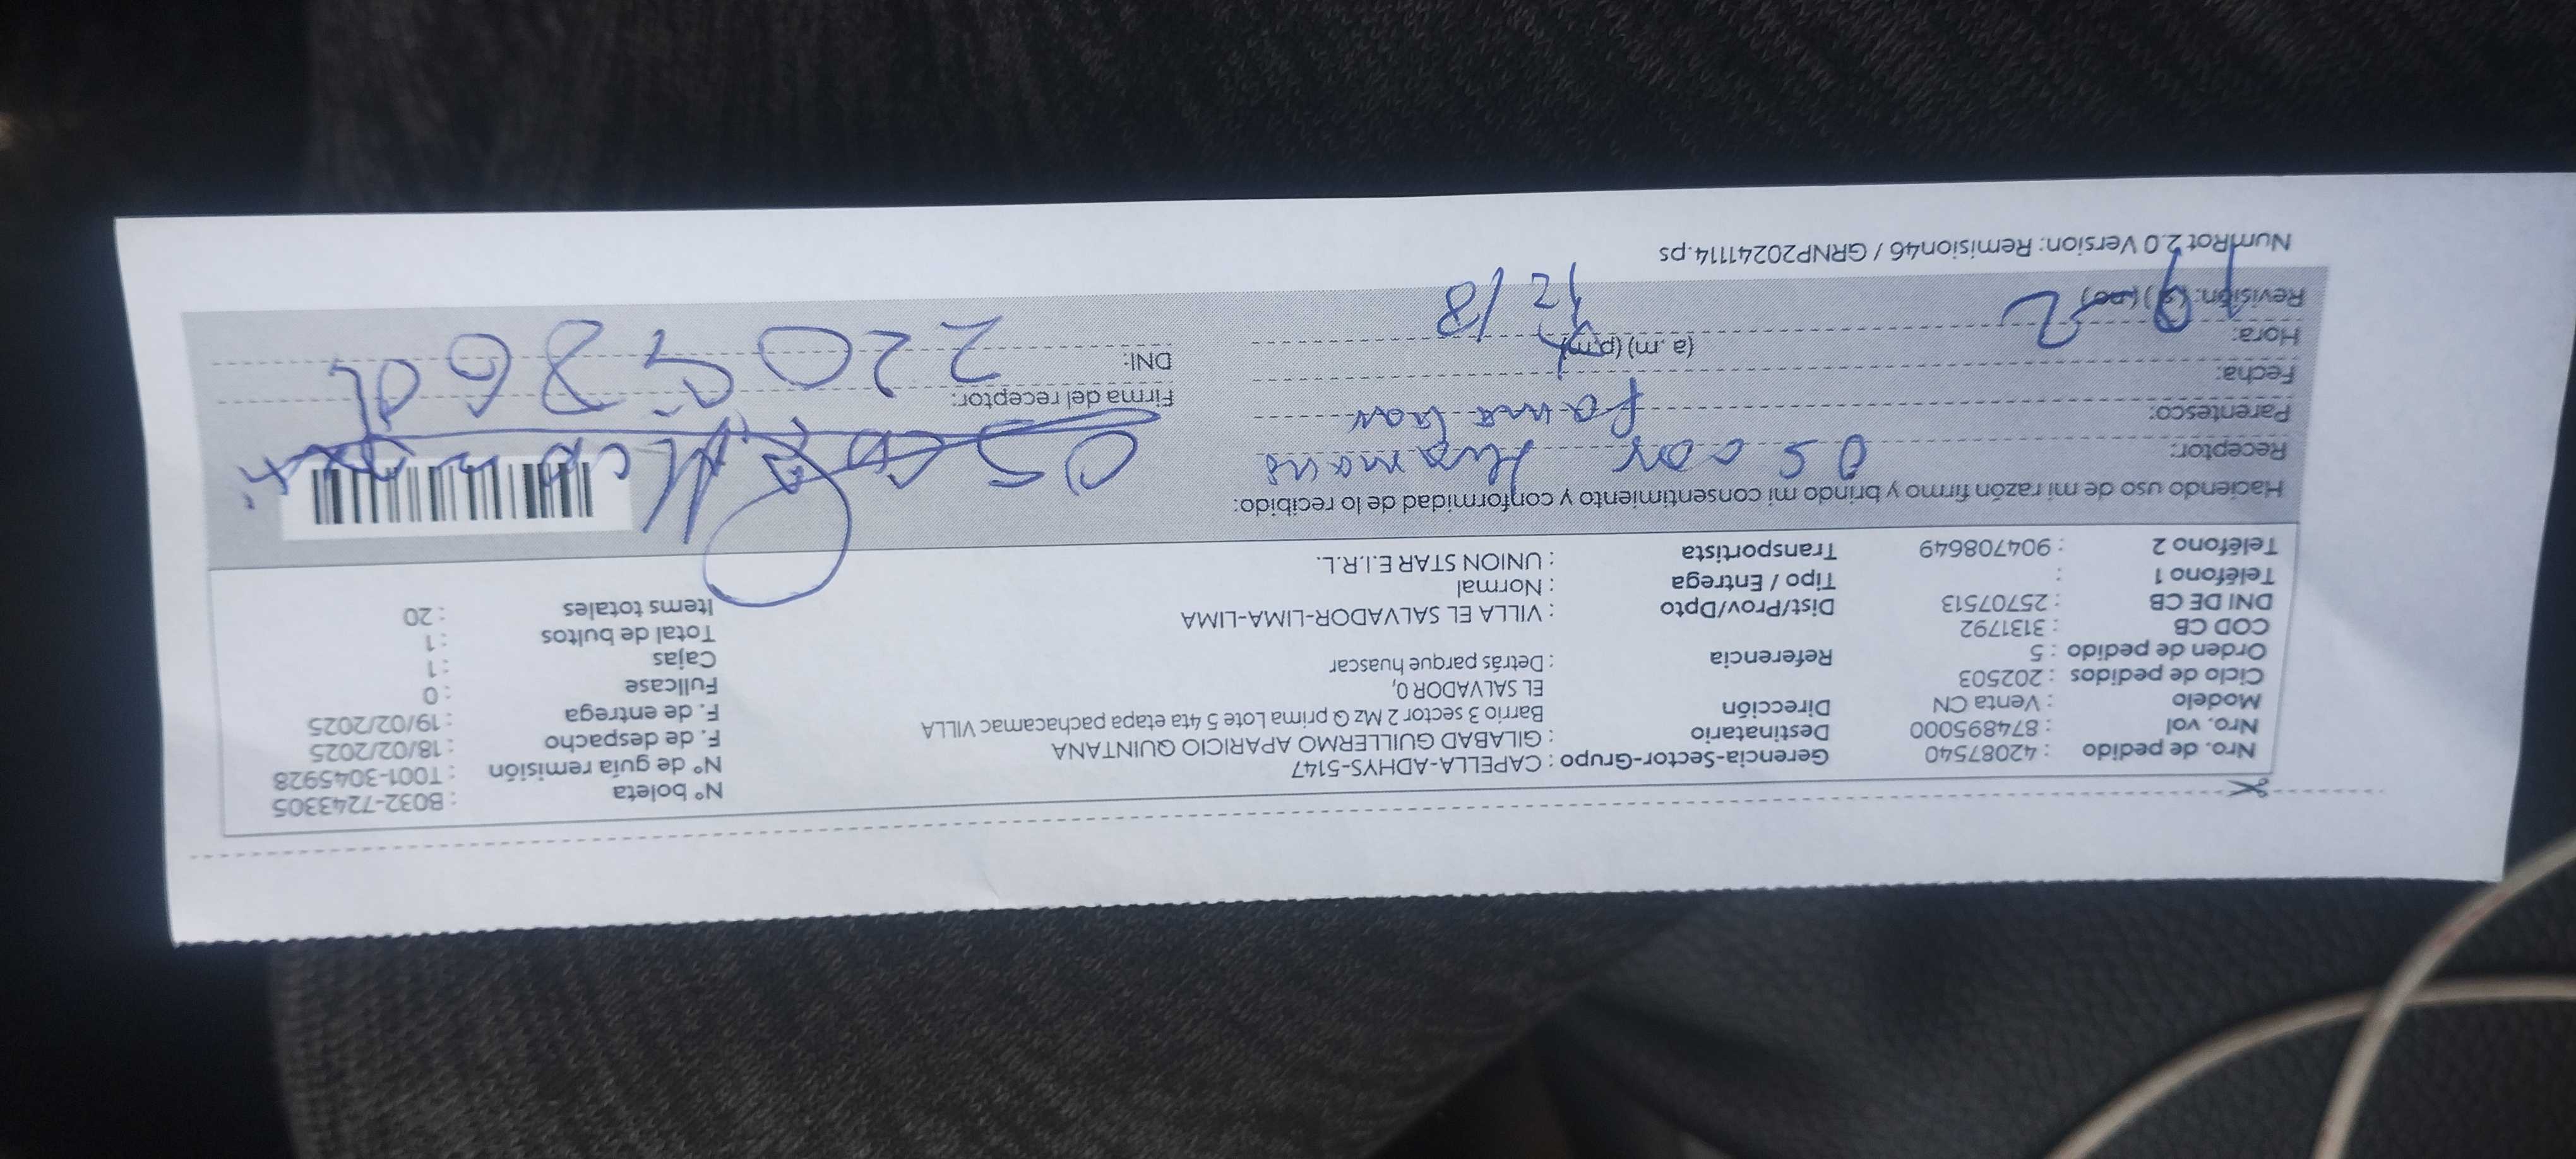 Nro. de pedido : 42087540 Gerencia-Sector-Grupo : CAPELLA-ADHYS-5147 N° boleta : B032-7243305
Nro. vol : 874895000 Destinatario : GILABAD GUILLERMO APARICIO QUINTANA N° de guía remisión : T001-3045928
Modelo : Venta CN Dirección Barrio 3 sector 2 Mz Q prima Lote 5 4ta etapa pachacamac VILLA F. de despacho : 18/02/2025
Ciclo de pedidos : 202503 EL SALVADOR 0, F. de entrega : 19/02/2025
Orden de pedido : 5 Referencia : Detrás parque huascar Fullcase : 0
COD CB : 3131792 Cajas : 1
DNI DE CB : 25707513 Dist/Prov/Dpto : VILLA EL SALVADOR-LIMA-LIMA Total de bultos : 1
Teléfono 1 : Tipo / Entrega : Normal Items totales : 20
Teléfono 2 : 904708649 Transportista : UNION STAR E.I.R.L.
Haciendo uso de mi razón firmo y brindo mi consentimiento y conformidad de lo recibido:
Receptor: Oscar
Parentesco:
Fecha: Firma del receptor:
Hora: (a. m) (p.m) DNI:
Revisión: (si) (no)
NumRot 2.0 Version: Remision46 / GRNP20241114.ps